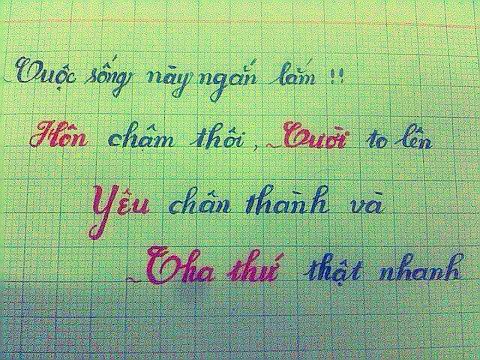 Cuộc sống này ngắn lắm !!
Hôn chậm thôi, Cười to lên
Yêu chân thành và
Tha thứ thật nhanh